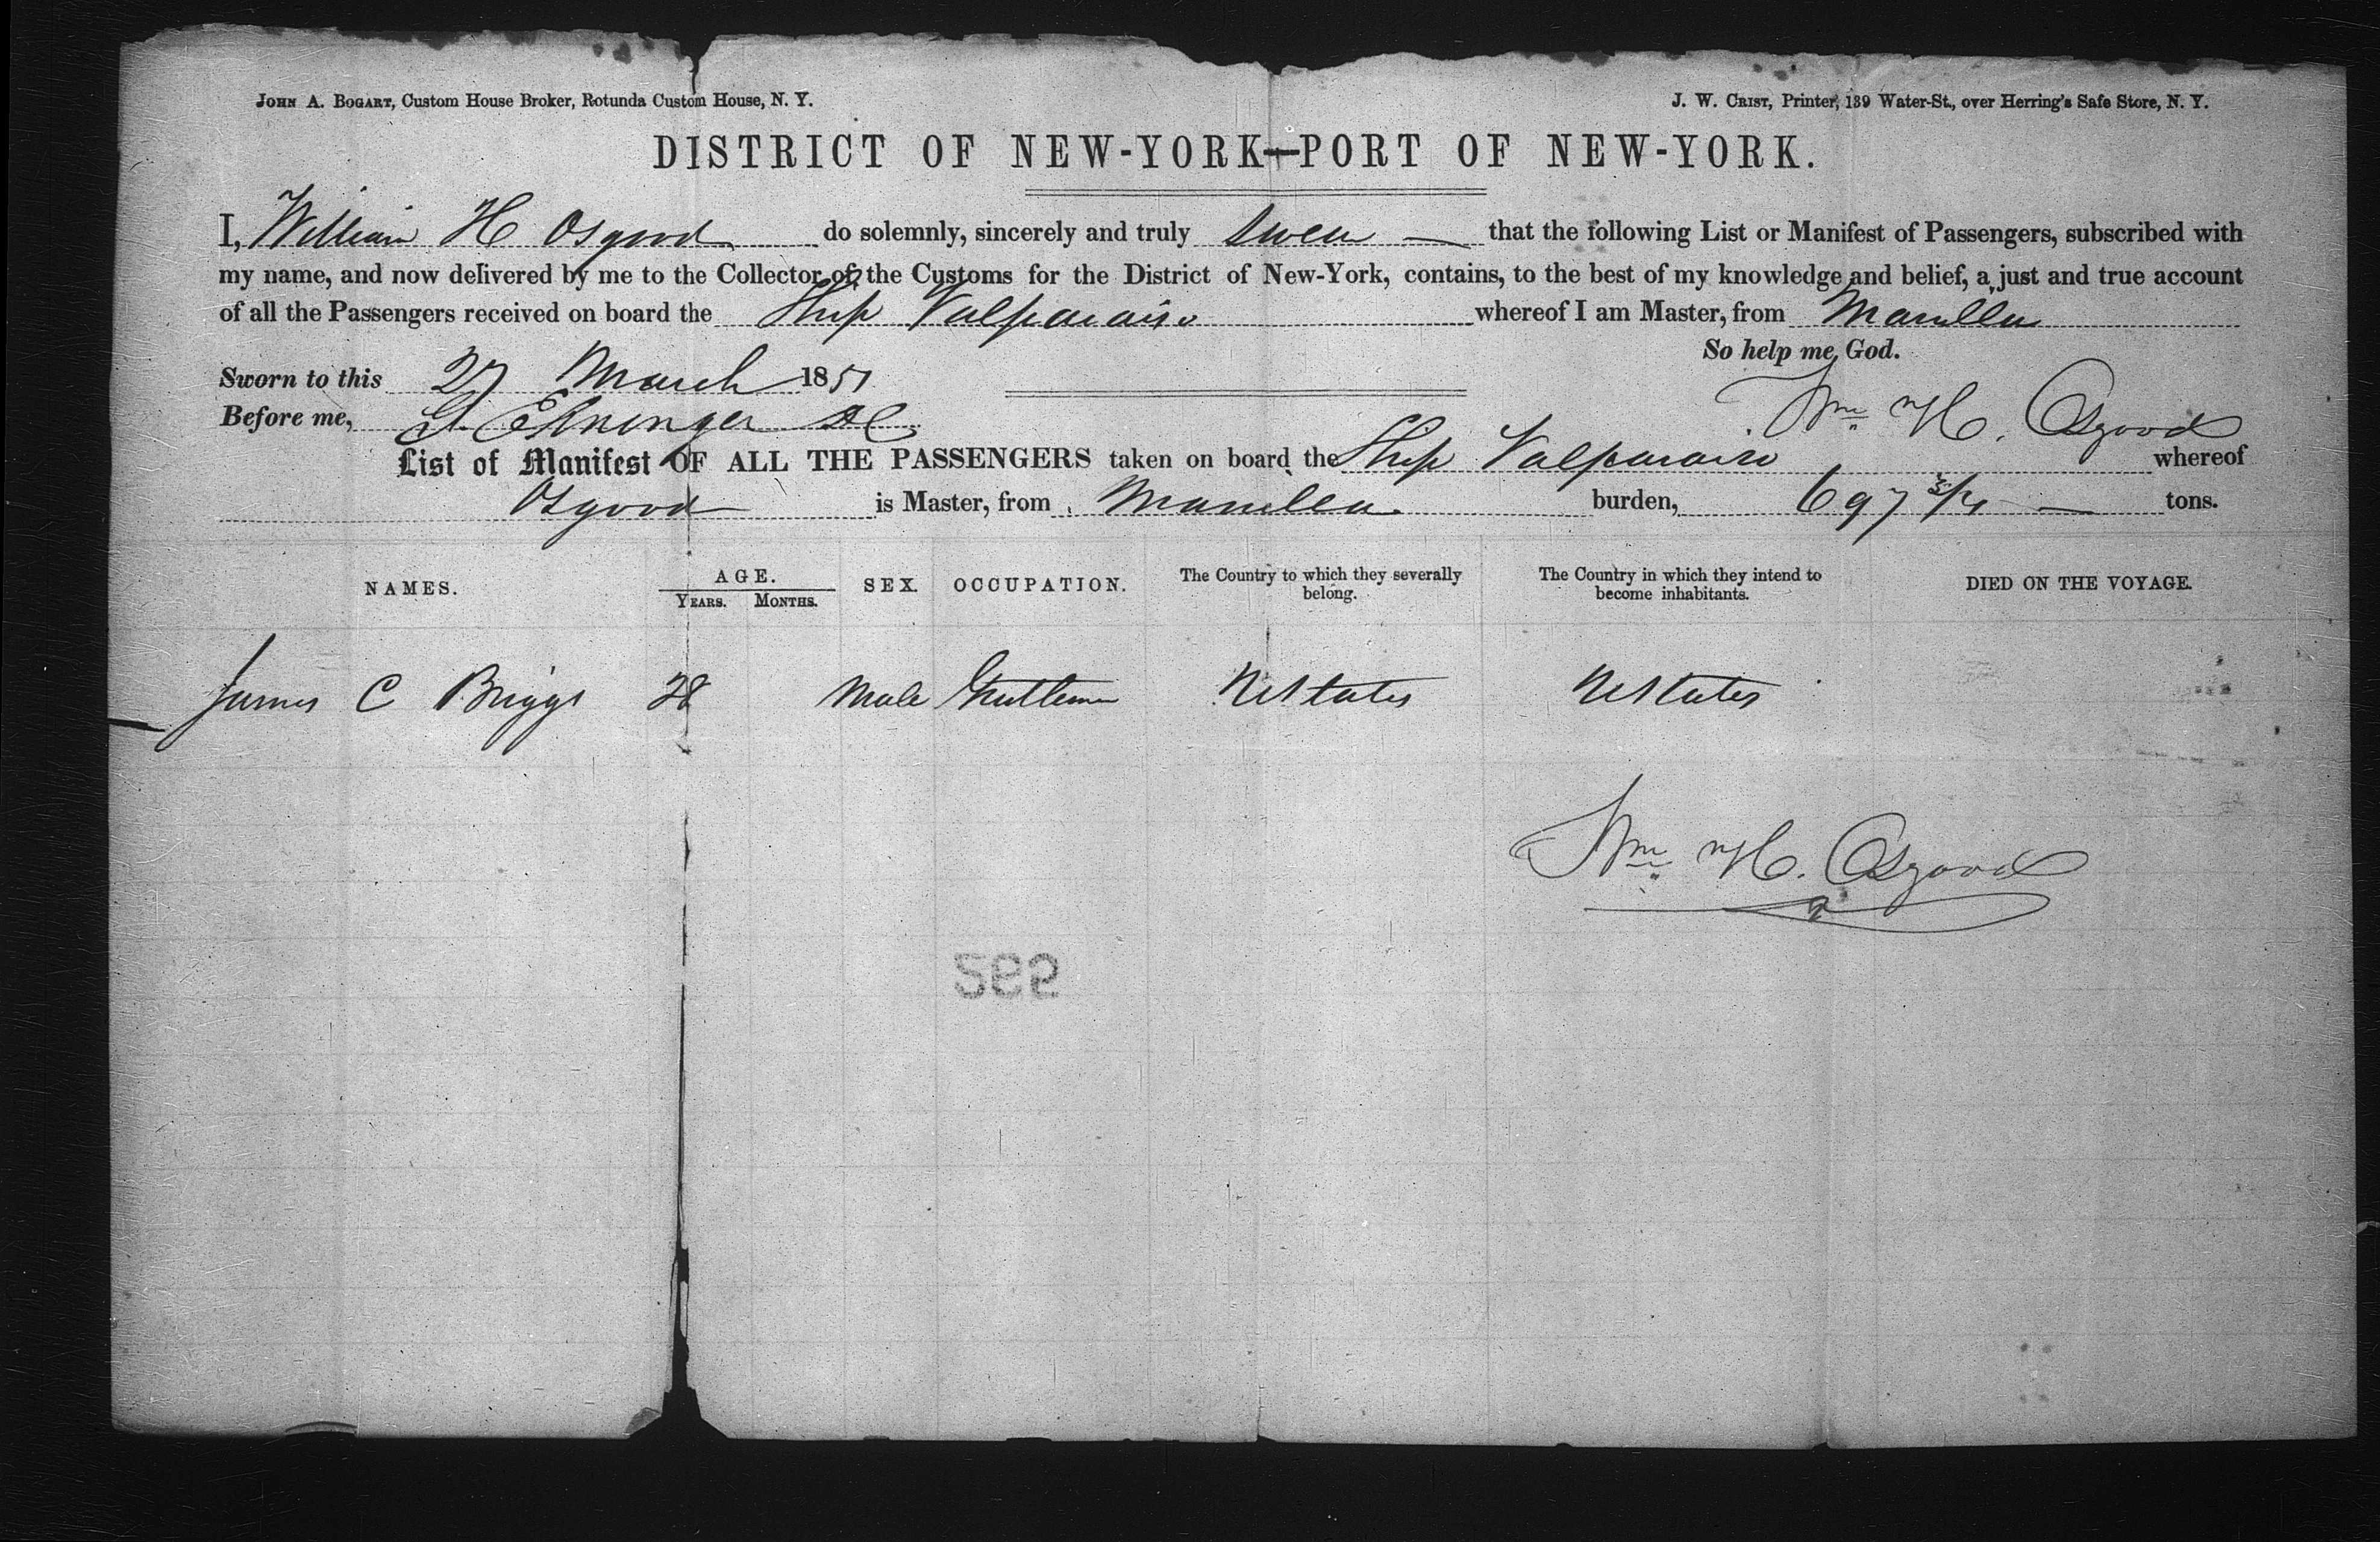 JOHN A. BOGART, Custom House Broker, Rotunda Custom House, N. Y. J. W. CRIST, Printer, 139 Water-St., over Herring's Safe Store, N. Y.
DISTRICT OF NEW-YORK—PORT OF NEW-YORK.
I, William H Osgood do solemnly, sincerely and truly swear — that the following List or Manifest of Passengers, subscribed with
my name, and now delivered by me to the Collector of the Customs for the District of New-York, contains, to the best of my knowledge and belief, a just and true account
of all the Passengers received on board the Ship Valparaiso whereof I am Master, from Manilla
So help me God.
Sworn to this 27 March 1851
Wm H. Osgood
Before me,
List of Manifest OF ALL THE PASSENGERS taken on board the Ship Valparaiso whereof
Osgood is Master, from Manilla burden, 697 3/4 — tons.
NAMES. AGE. YEARS. MONTHS. SEX. OCCUPATION. The Country to which they severally belong. The Country in which they intend to become inhabitants. DIED ON THE VOYAGE.
James C Briggs 28 Male Gentleman UStates UStates
Wm H. Osgood
595